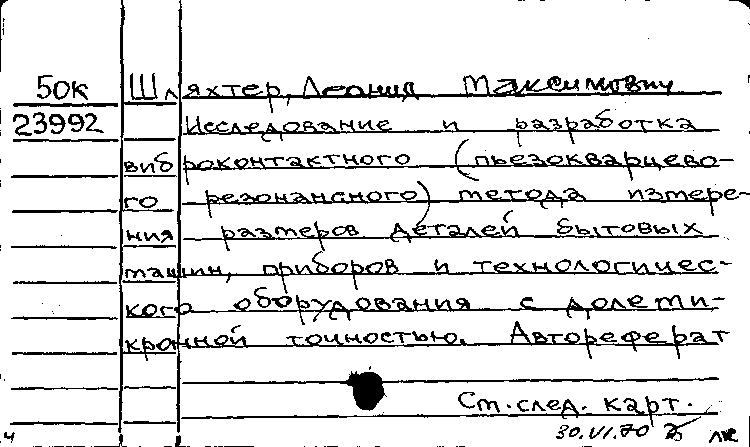 50к Шляхтер, Леонид Максимович
23992 Исследование и разработка
виброконтактного (пьезокварцево-
го резонансного) метода измере-
ния размеров деталей бытовых
машин, приборов и технологичес-
кого оборудования с долеми-
кронной точностью. Автореферат
См. след. карт.
30.VI.70